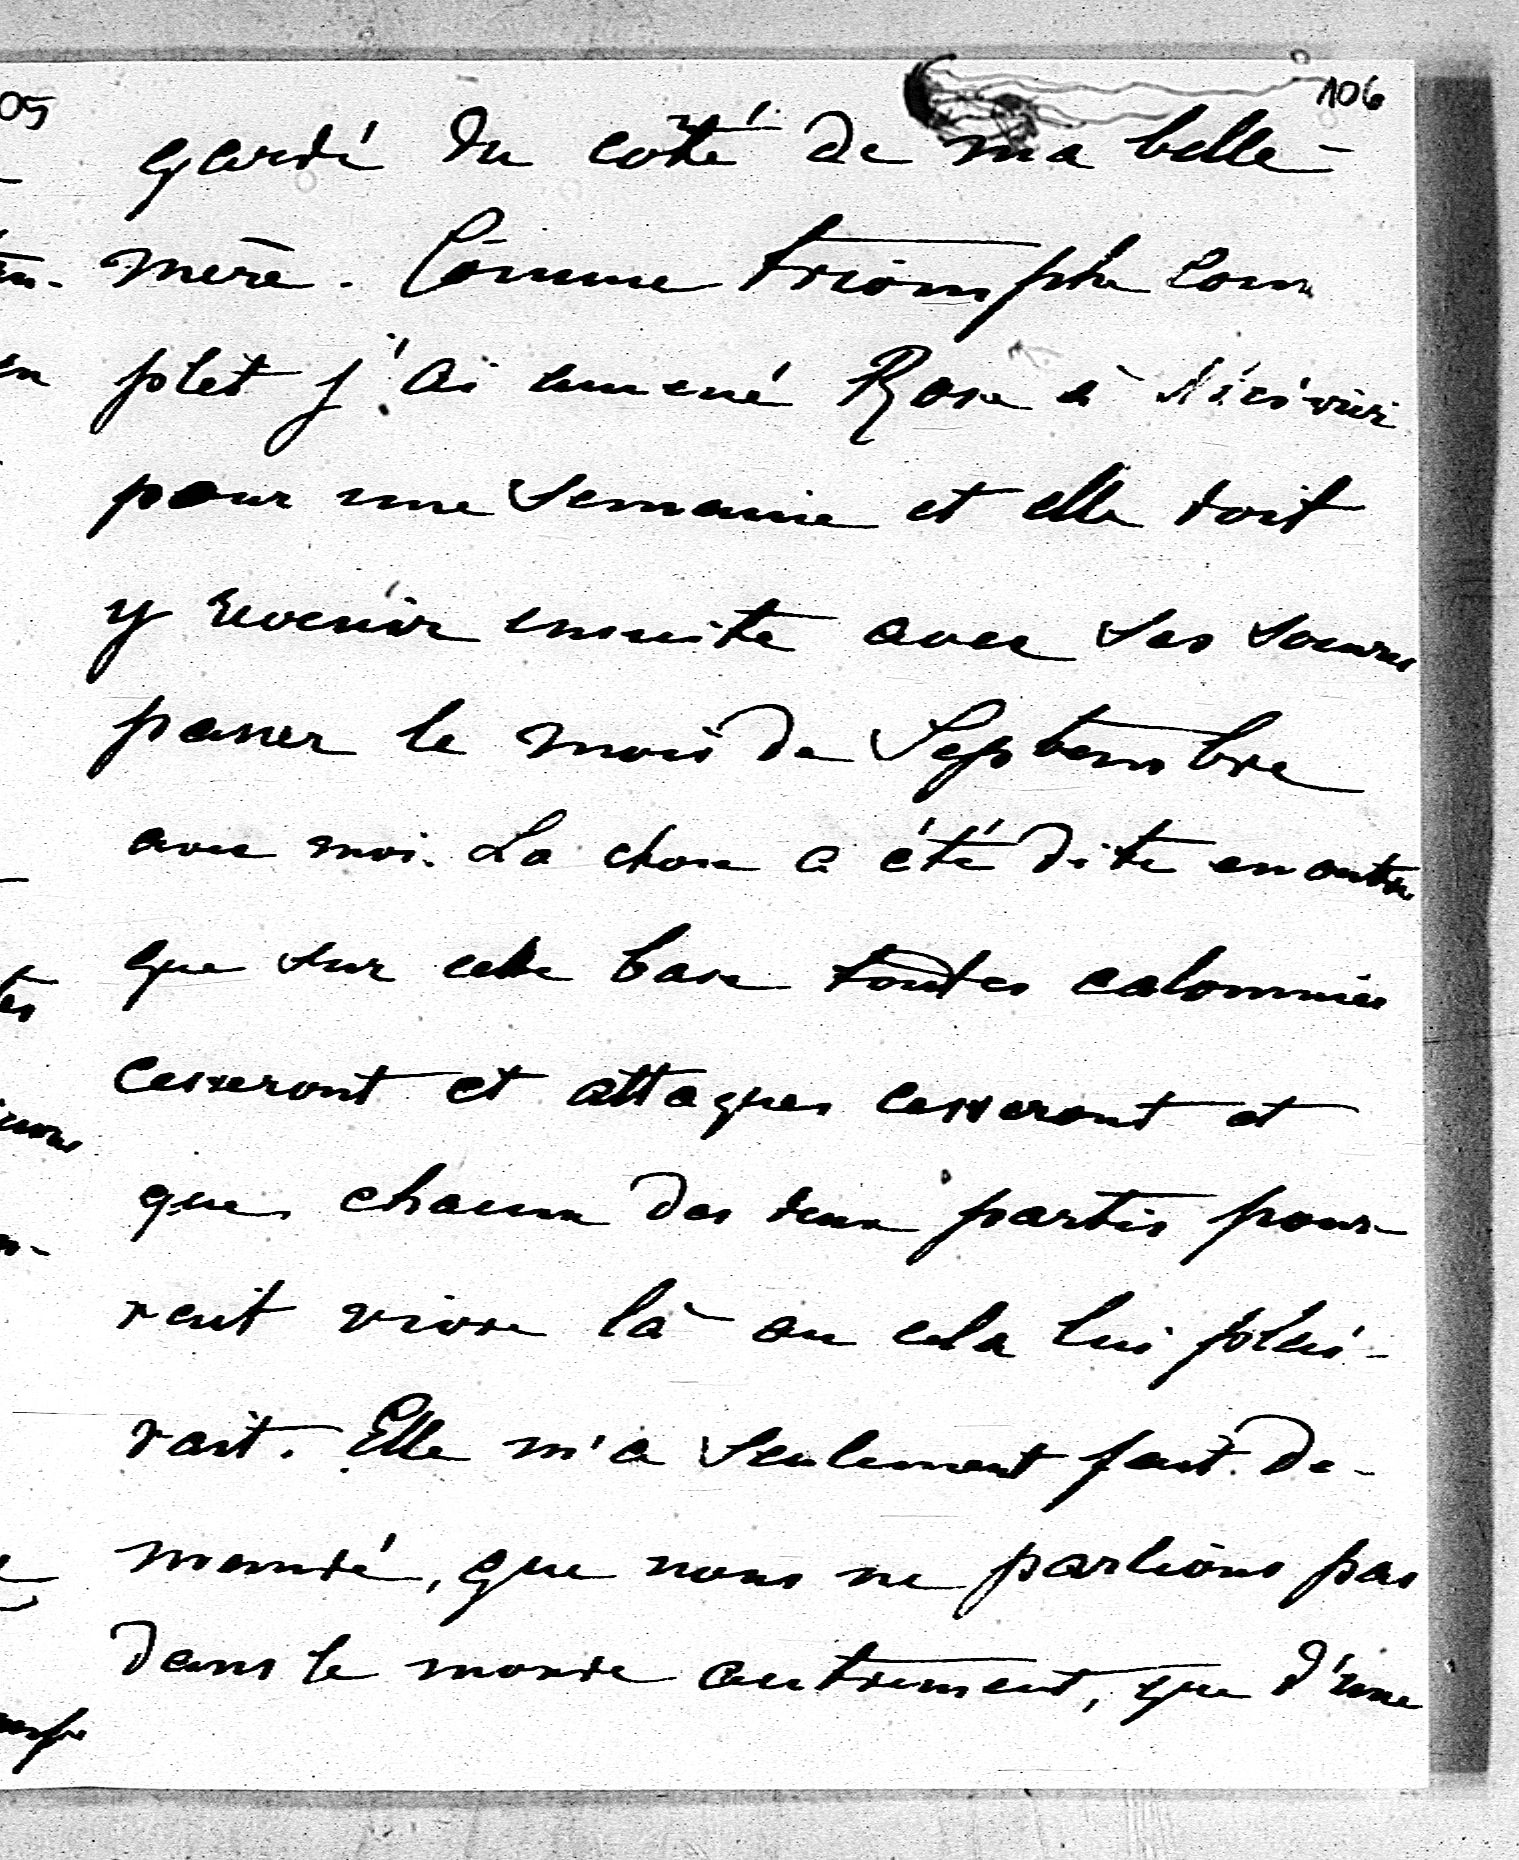 106
gardé du côté de ma belle-
mère. Comme triomphe com
plet j'ai amené Rose à
pour une semaine et elle doit
y revenir ensuite avec ses soeurs
passer le mois de Septembre
avec moi. La chose a été dite en outre
que sur cette base toutes calomnies
cesseront et attaques cesseront et
que chacun des deux partis pour-
rait vivre là ou cela lui plai-
rait. Elle m'a seulement fait de-
mandé, que nous ne parlions pas
dans le monde autrement, que d'une